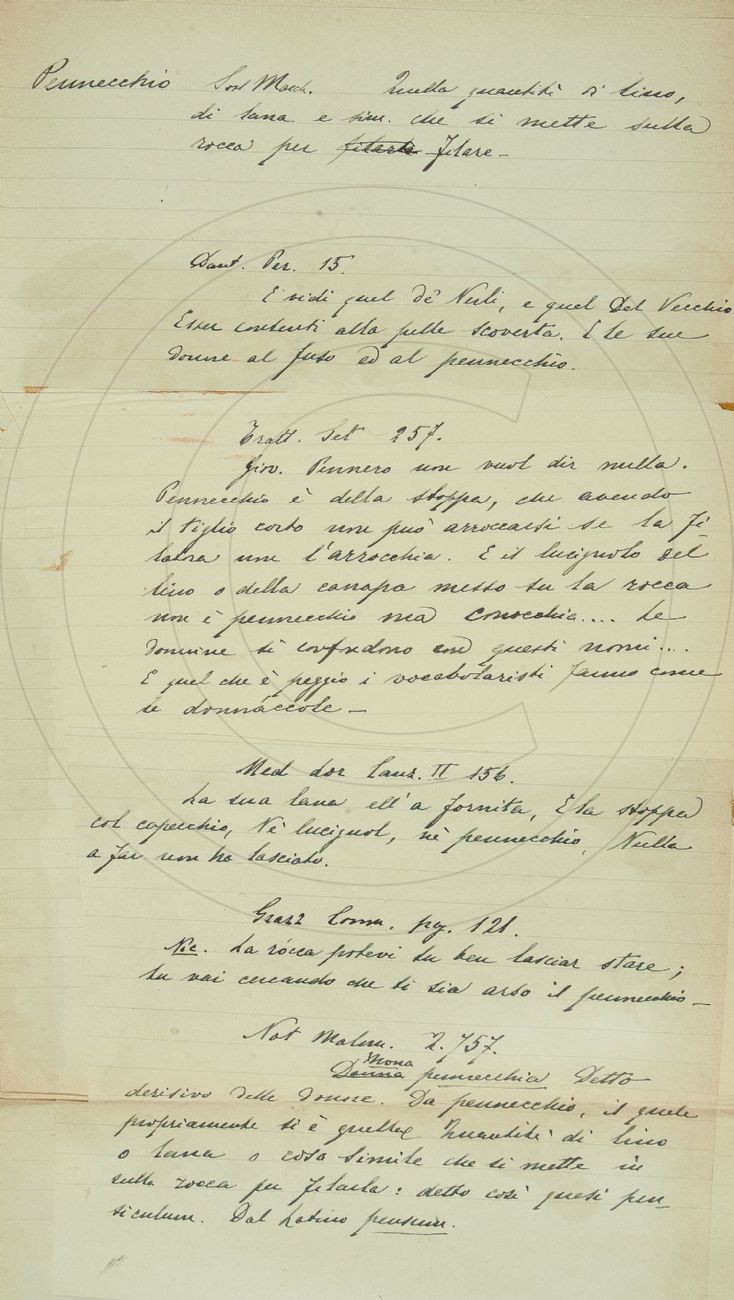 Pennecchio Sost Masch. Quella quantità di lino,
di lana e sim. che si mette sulla
rocca per filarla filare –
Dant. Par. 15.
E vidi quel de' Nerli, e quel del Vecchio
Esser contenti alla pelle scoverta. E le sue
donne al fuso ed al pennecchio.
Tratt. Set 257.
Giov. Pennero non vuol dir nulla.
Pennecchio è della stoppa, che avendo
il tiglio corto non può arroccarsi se la fi-
latora non l'arrocchia. E il lucignolo del
lino o della canapa messo su la rocca
non è pennecchio ma conocchia.... Le
donnine si confondono con questi nomi....
E quel che è peggio i vocabolaristi fanno come
le donnáccole –
Med Lor Canz. II 156.
La sua lana ell'a fornita, E la stoppa
col capecchio, Nè lucignol, nè pennecchio, Nulla
a far non ha lasciato.
Grazz Comm. pg. 121.
Nic. La rócca potevi tu ben lasciar stare;
tu vai cercando che ti sia arso il pennecchio –
Not Malm. 2. 757.
Mona
Donna pennecchia Detto
derisivo delle donne. Da pennecchio, il quale
propriamente si è quella quantità di lino
o lana o cosa simile che si mette in
sulla rocca per filarla: detto così quasi pen-
siculum. Dal Latino pensum.